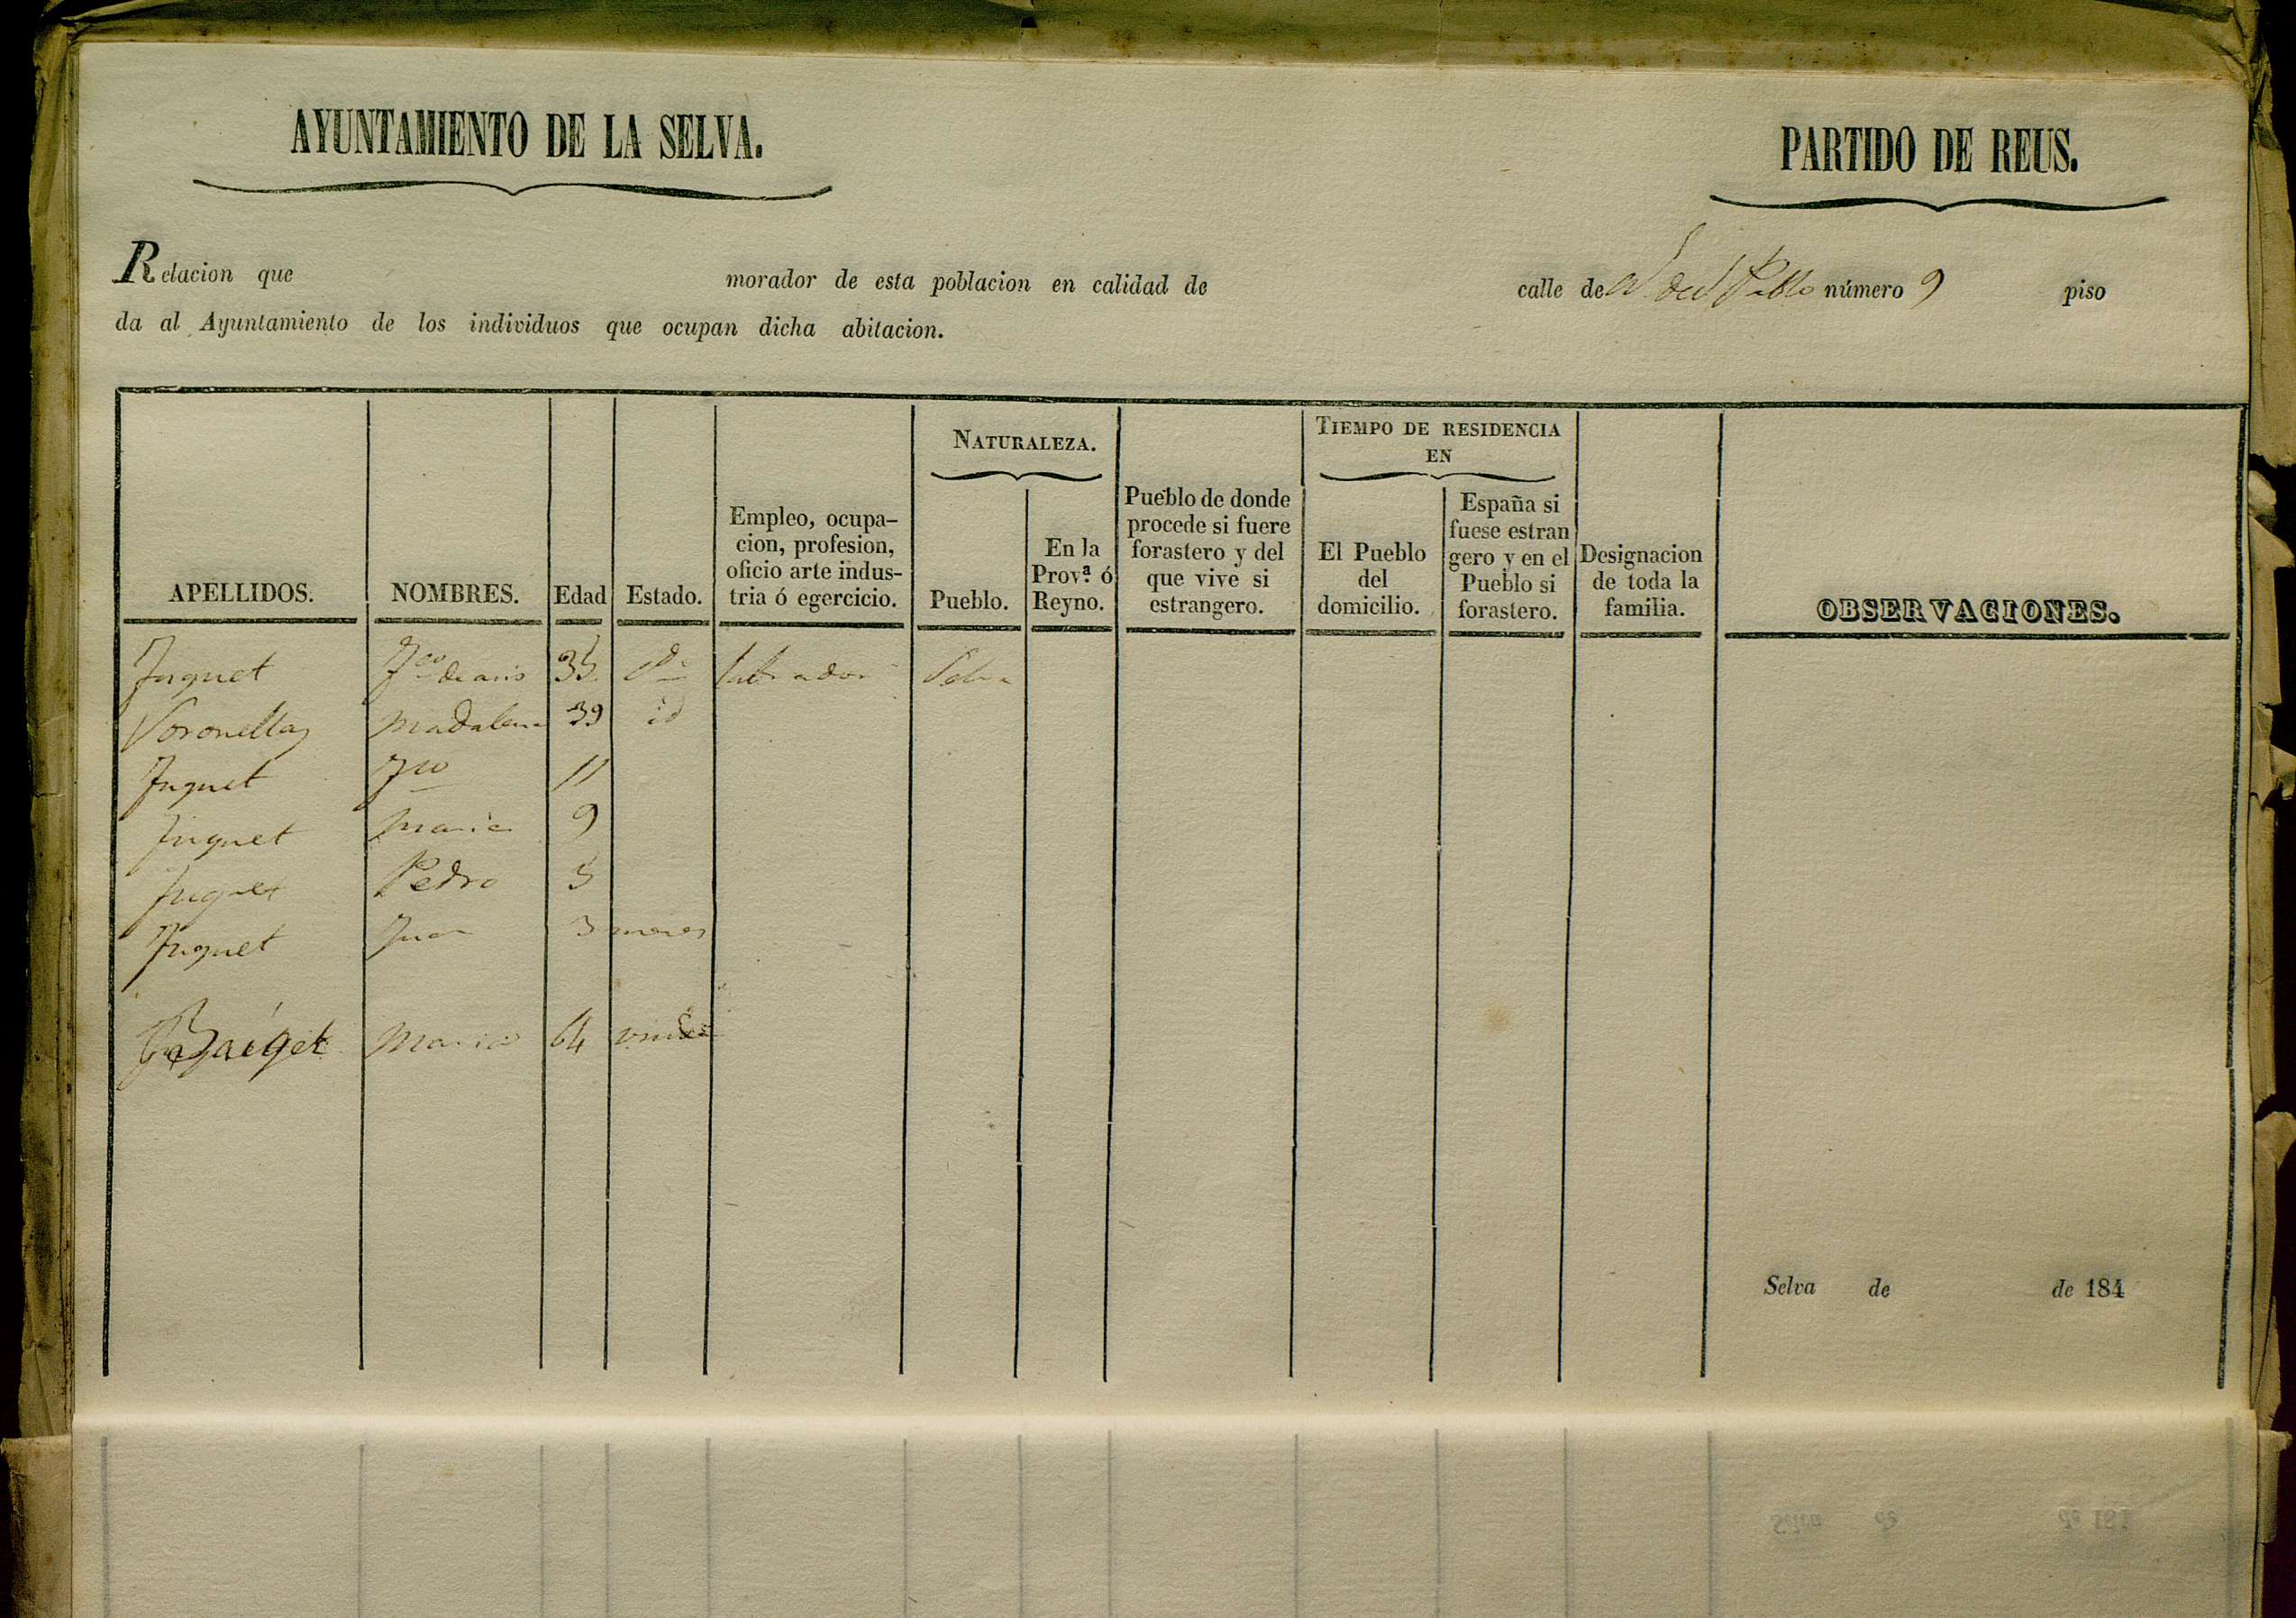 AYUNTAMIENTO DE LA SELVA.
PARTIDO DE REUS.
Relacion que morador de esta poblacion en calidad de calle de número 9 piso
da al Ayuntamiento de los individuos que ocupan dicha abitacion.
APELLIDOS.
NOMBRES.
Edad
Estado.
Empleo, ocupa-
cion, profesion,
oficio arte indus-
tria ó egercicio.
NATURALEZA.
Pueblo.
En la
Prov.ª ó
Reyno.
Pueblo de donde
procede si fuere
forastero y del
que vive si
estrangero.
TIEMPO DE RESIDENCIA
EN
El Pueblo
del
domicilio.
España si
fuese estran
gero y en el
Pueblo si
forastero.
Designacion
de toda la
familia.
OBSERVACIONES.
Juguet 35 labrador Selva
Voronellas Madalena 39 id
Juguet 11
Juguet Maria 9
Juguet Pedro 5
Juguet Juan 3 meses
Baiget Maria 64 viuda
Selva de de 184